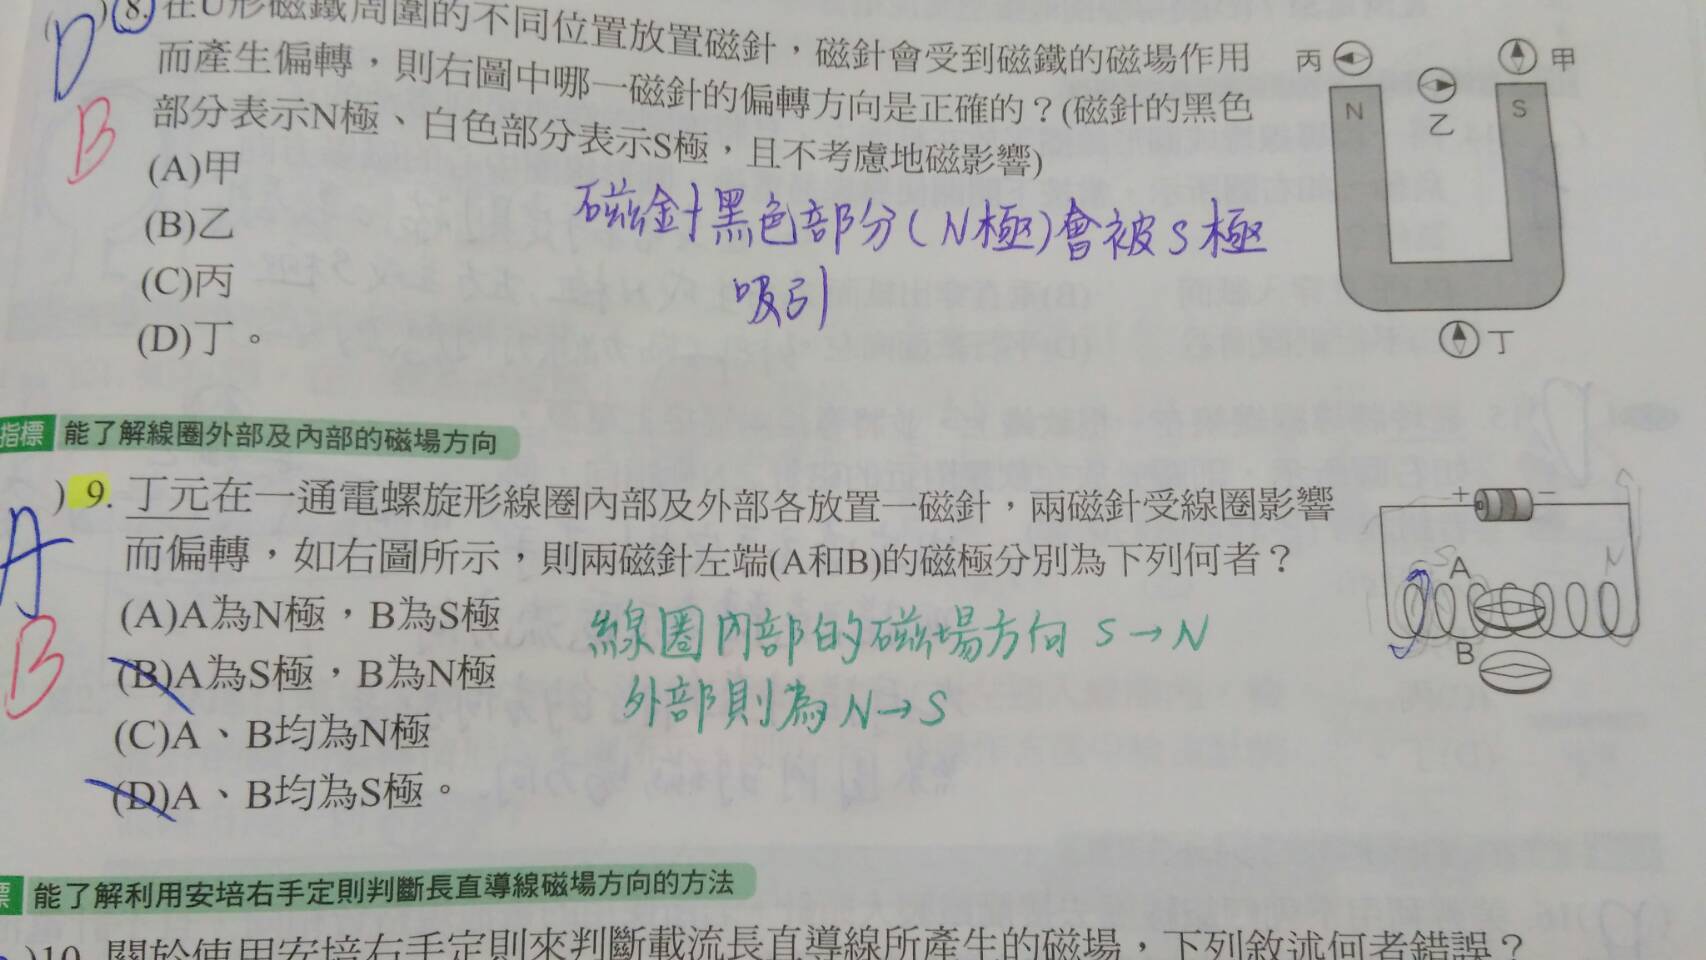 D
)8. 在U形磁鐵周圍的不同位置放置磁針，磁針會受到磁鐵的磁場作用
而產生偏轉，則右圖中哪一磁針的偏轉方向是正確的？(磁針的黑色
部分表示N極、白色部分表示S極，且不考慮地磁影響)
B
(A)甲
(B)乙
(C)丙
(D)丁。
磁針黑色部分(N極)會被S極
吸引
丙
甲
N
乙
S
丁
指標 能了解線圈外部及內部的磁場方向
)9. 丁元在一通電螺旋形線圈內部及外部各放置一磁針，兩磁針受線圈影響
而偏轉，如右圖所示，則兩磁針左端(A和B)的磁極分別為下列何者？
A
(A)A為N極，B為S極
(B)A為S極，B為N極
(C)A、B均為N極
(D)A、B均為S極。
B
線圈內部的磁場方向 S→N
外部則為N→S
+ −
S
N
A
B
標 能了解利用安培右手定則判斷長直導線磁場方向的方法
)10. 關於使用安培右手定則來判斷載流長直導線所產生的磁場，下列敘述何者錯誤？